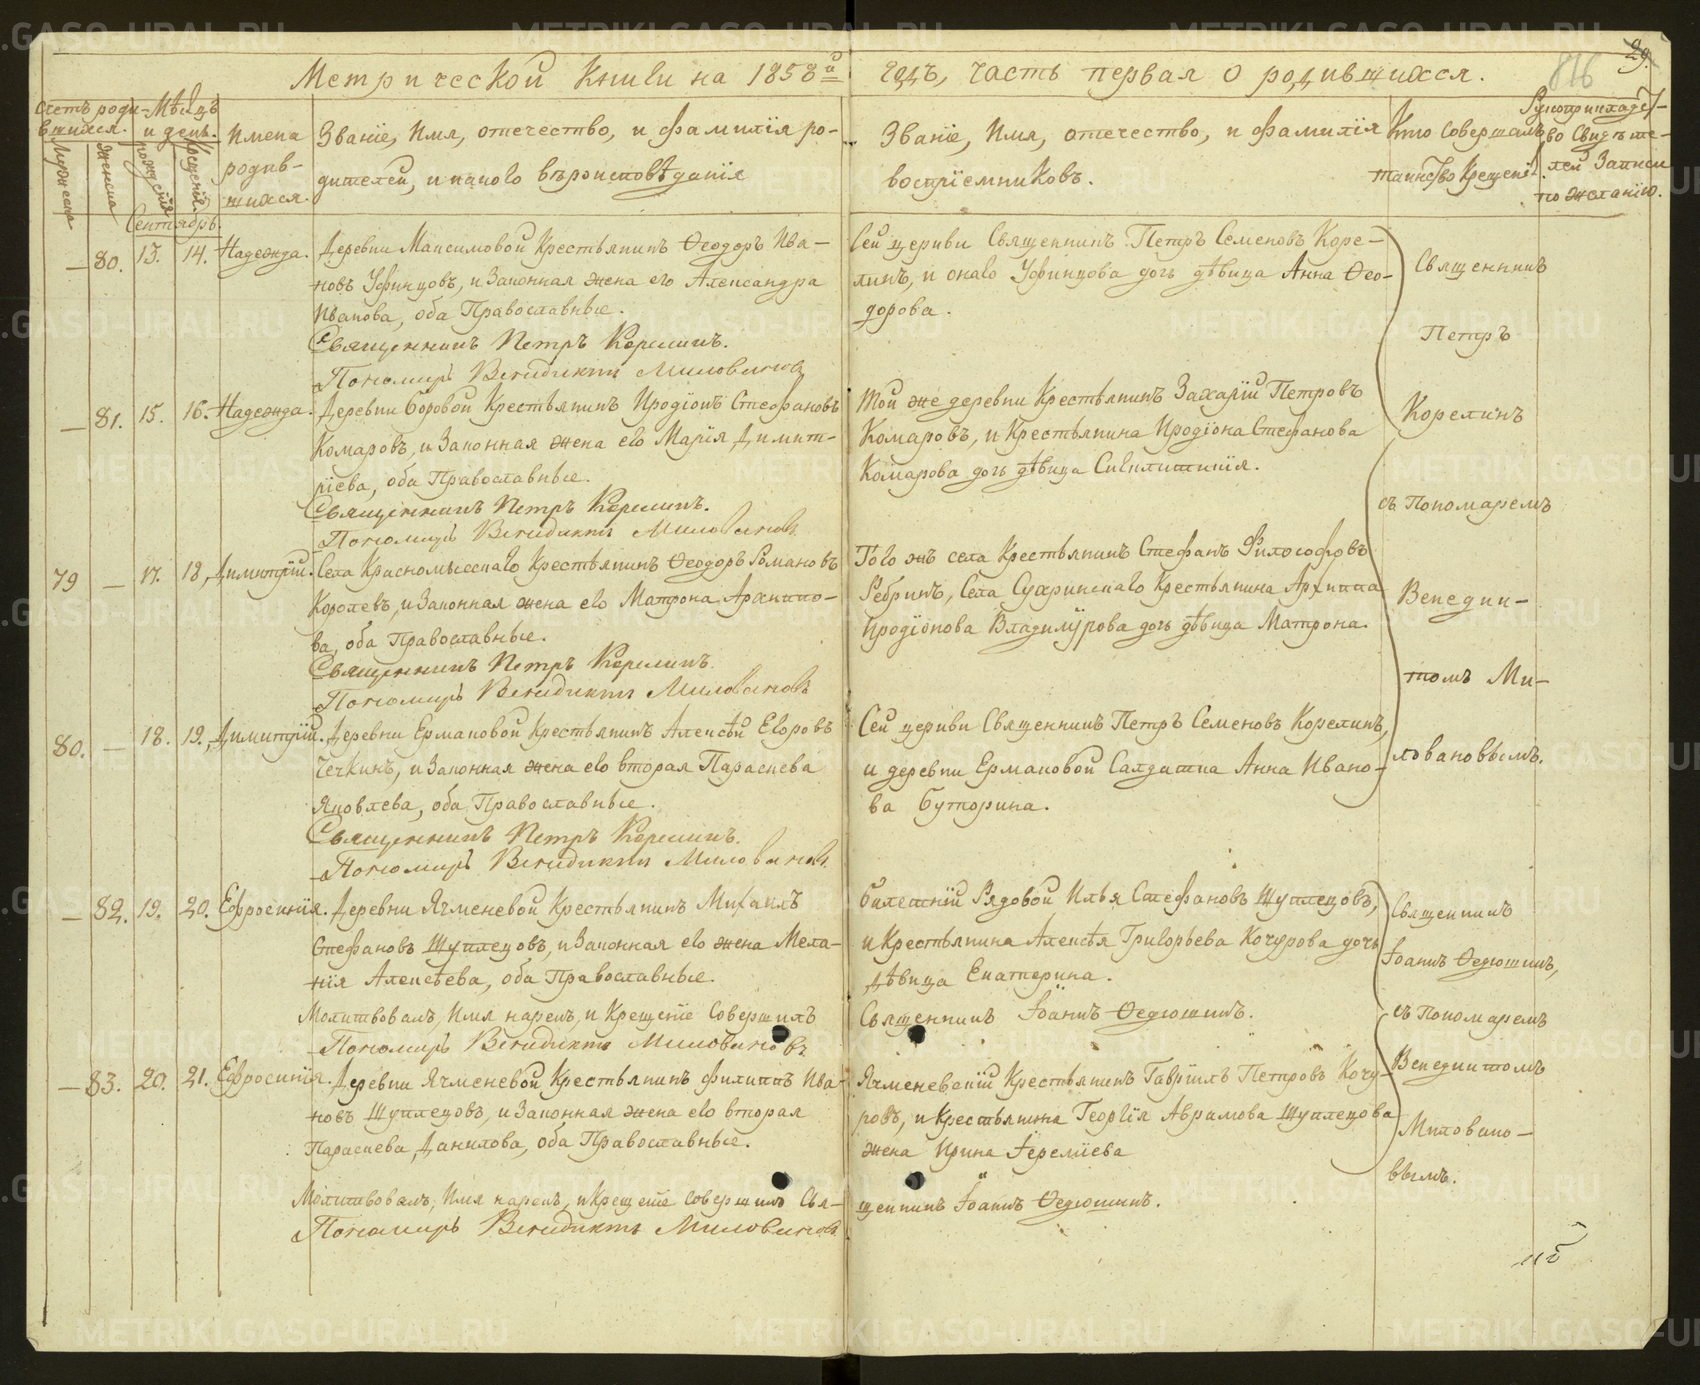 Метрической Книги на 1858й годъ, часть первая о родившихся.
816
29.
Счетъ роди-
вшихся.
Мужеска
Женска
Мѣсяцъ
и день.
рожденія
Крещенія
Имена
родив-
шихся.
Званіе, Имя, отечество, и фамилія ро-
дителей, и какого вѣроисповѣданія
Званіе, Имя, отечество, и фамилія
воспріемниковъ.
Кто совершалъ
таинство Крещенія
Рукоприкладст-
во свидѣте-
лей Записи
по желанію.
Сентябрь.
— 80. 13. 14. Надежда.
Деревни Максимовой Крестьянинъ Ѳеодоръ Ива-
новъ Уфинцовъ, и Законная жена его Александра
Иванова, оба Православные.
Священникъ Петръ Корелинъ.
Пономарь Венидиктъ Миловановъ
Сей церкви Священникъ Петръ Семеновъ Коре-
линъ, и онаго Уфинцова дочь дѣвица Анна Ѳео-
дорова.
— 81. 15. 16. Надежда.
Деревни Боровой Крестьянинъ Иродіонъ Стефановъ
Комаровъ, и Законная жена его Марія Димит-
ріева, оба Православные.
Священникъ Петръ Корелинъ.
Пономарь Венидиктъ Миловановъ
Той же деревни Крестьянинъ Захарій Петровъ
Комаровъ, и Крестьянина Иродіона Стефанова
Комарова дочь дѣвица Сигклитикія.
79 — 17. 18, Димитрій.
Села Красномысскаго Крестьянинъ Ѳеодоръ Романовъ
Королевъ, и Законная жена его Матрона Архипо-
ва, оба Православные.
Священникъ Петръ Корелинъ.
Пономарь Венидиктъ Миловановъ
Того жъ села Крестьянинъ Стефанъ Философовъ
Ребринъ, Села Сухринскаго Крестьянина Архиппа
Иродіонова Владимірова дочь дѣвица Матрона.
80. — 18. 19, Димитрій.
Деревни Ермаковой Крестьянинъ Алексѣй Егоровъ
Чечкинъ, и Законная жена его вторая Параскева
Яковлева, оба Православные.
Священникъ Петръ Корелинъ.
Пономарь Венидиктъ Миловановъ
Сей церкви Священникъ Петръ Семеновъ Корелинъ,
и деревни Ермаковой Салдатка Анна Ивано-
ва Буторина.
Священникъ
Петръ
Корелинъ
съ Пономаремъ
Венедик-
томъ Ми-
ловановымъ.
— 82. 19. 20. Ефросинія.
Деревни Ячменевой Крестьянинъ Михаилъ
Стефановъ Щуплецовъ, и Законная его жена Мела-
нія Алексѣева, оба Православные.
Молитвовалъ, Имя нарекъ, и Крещеніе Совершилъ
Пономарь Венидиктъ Миловановъ
Билетній Рядовой Илья Стефановъ Щуплецовъ,
и Крестьянина Алексѣя Григорьева Кочурова дочь
дѣвица Екатерина.
Священникъ Іоаннъ Ѳедюшинъ.
— 83. 20. 21. Ефросинія.
Деревни Ячменевой Крестьянинъ Филиппъ Ива-
новъ Щуплецовъ, и Законная жена его вторая
Параскева Данилова, оба Православные.
Молитвовалъ, Имя нарекъ, и Крещеніе совершилъ Свя-
щенникъ Іоаннъ Ѳедюшинъ.
Пономарь Венидиктъ Миловановъ
Ячменевскій Крестьянинъ Гавріилъ Петровъ Кочу-
ровъ, и Крестьянина Георгія Аврамова Щуплецова
жена Ирина
Священникъ
Іоаннъ Ѳедюшинъ,
съ Пономаремъ
Венедиктомъ
Миловано-
вымъ.
METRIKI.GASO-URAL.RU